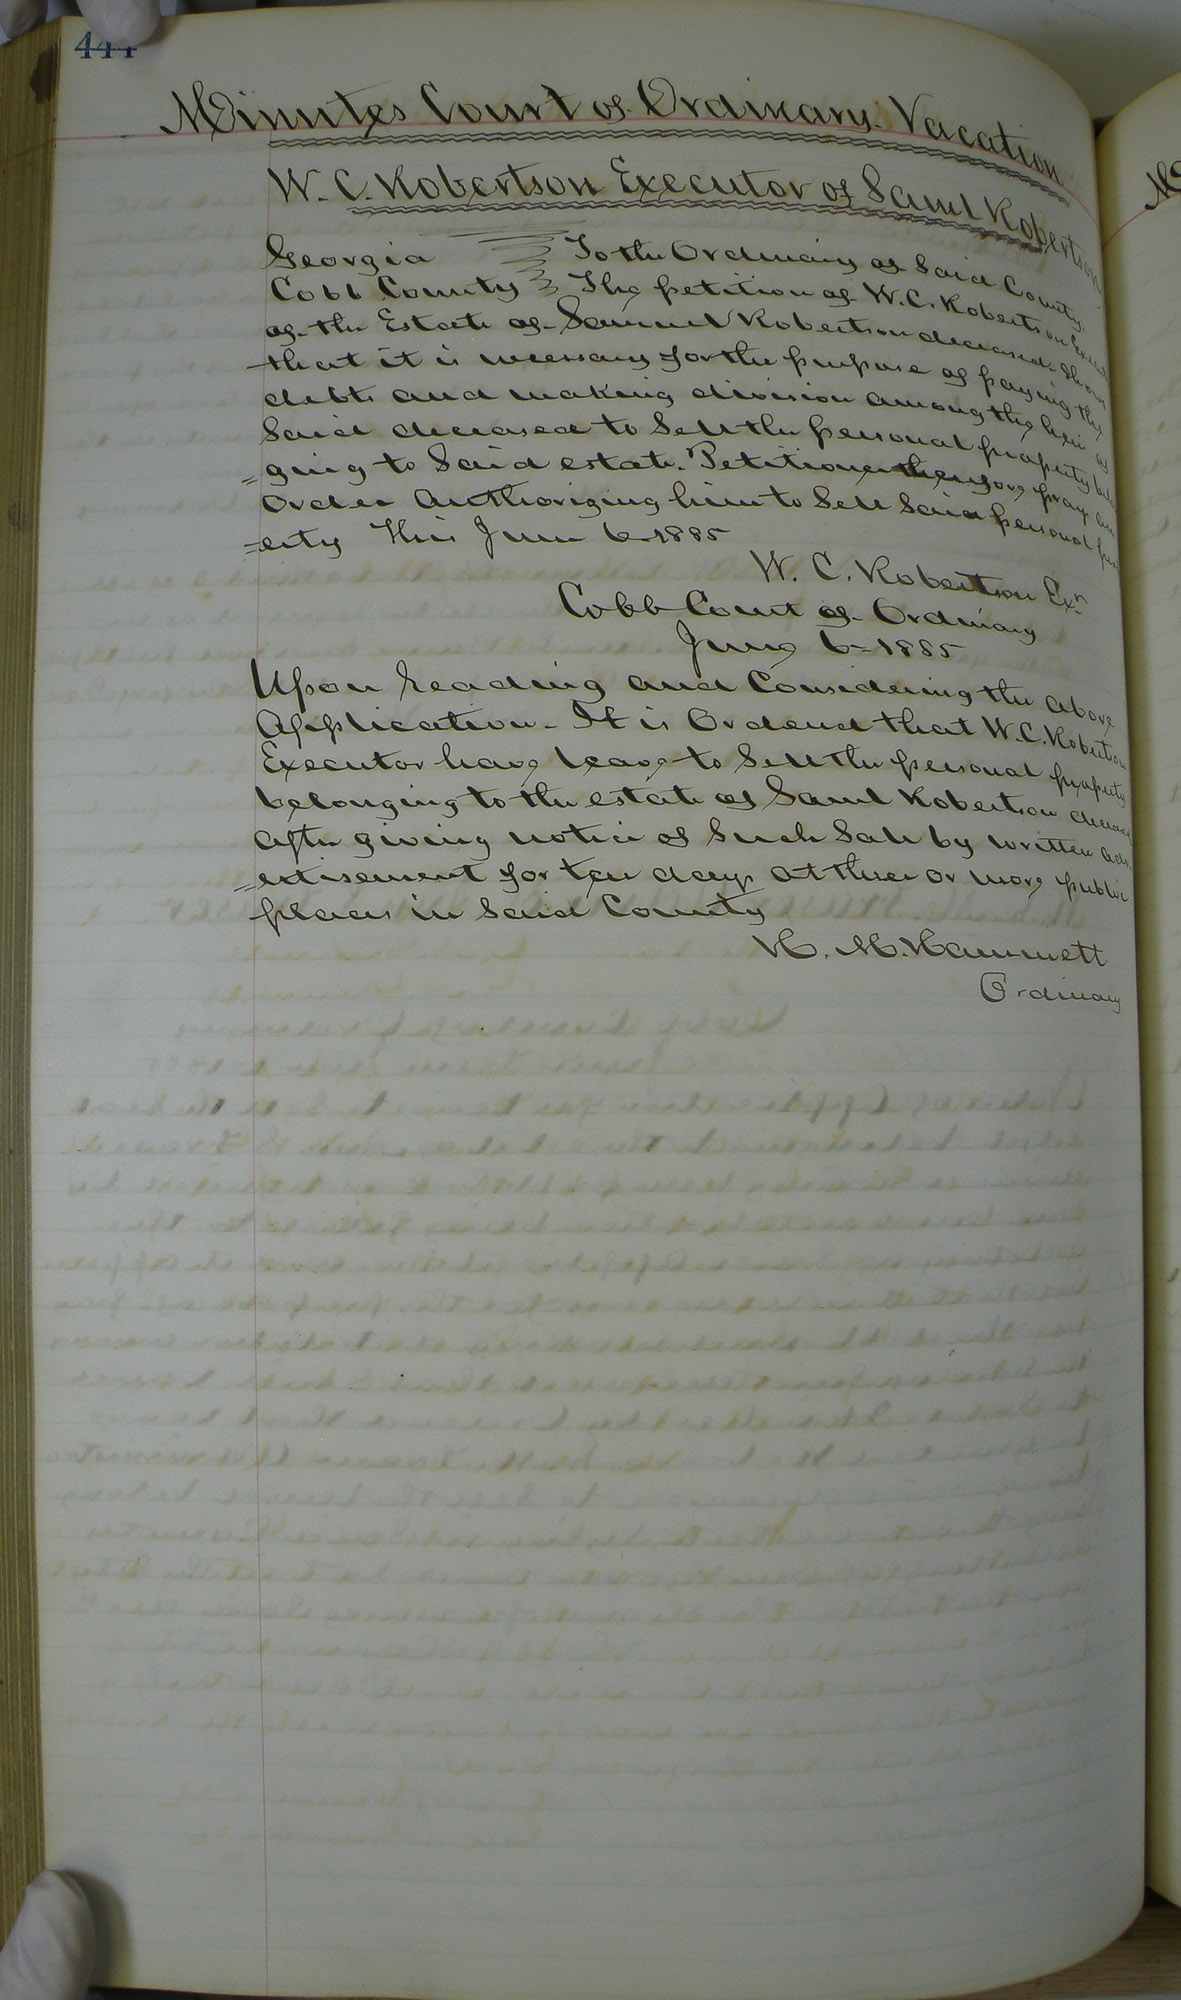 444
Minutes Court of Ordinary. Vacation
W. C. Robertson Executor of Saml Robertson
Georgia To the Ordinary of Said County.
Cobb County The petition of W. C. Robertson
of the Estate of Samuel Robertson deceased Shows
that it is necessary for the purpose of paying the
debts and making division among the heirs of
Said deceased to Sell the personal property belon
=ging to Said estate. Petitioner therefore prays an
Order Authorizing him to Sell Said personal prop
=erty This June 6-1885
W. C. Robertson Exr
Cobb Court of Ordinary
June 6-1885
Upon reading and Considering the above
Application- It is Ordered that W. C. Robertson
Executor have leave to Sell the personal property
belonging to the estate of Saml Robertson
after giving notice of Such Sale by written adv
=ertisement for ten days at three or more public
places in Said County
H. M. Hammett
Ordinary